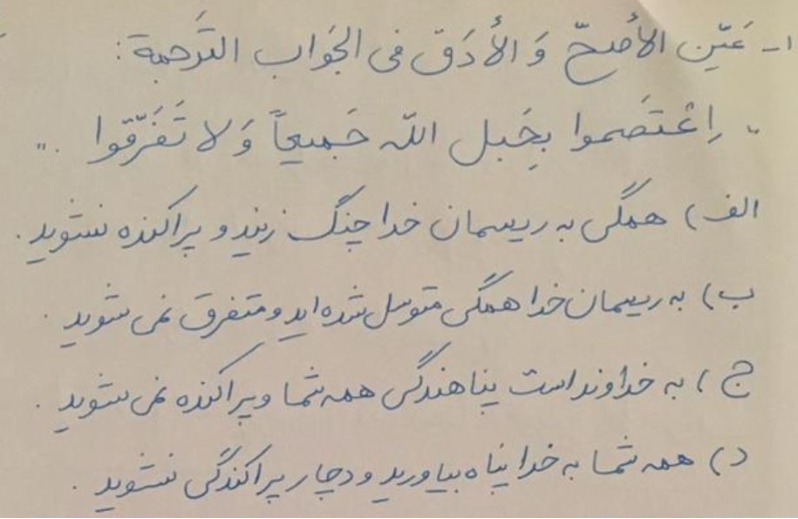 ۱- عَیّن الأصَحّ وَ الأدَق فی الجَواب التَرجمة:
" اِعْتَصَموا بِحَبل اللّه جَمیعاً وَ لا تَفَرّقوا ."
الف) همگی به ریسمان خدا چنگ زنید و پراکنده نشوید.
ب) به ریسمان خدا همگی متوسل شده اید و متفرق نمی شوید.
ج) به خداوند است پناهندگی همه شما و پراکنده نمی شوید.
د) همه شما به خدا پناه بیاورید و دچار پراکندگی نشوید.